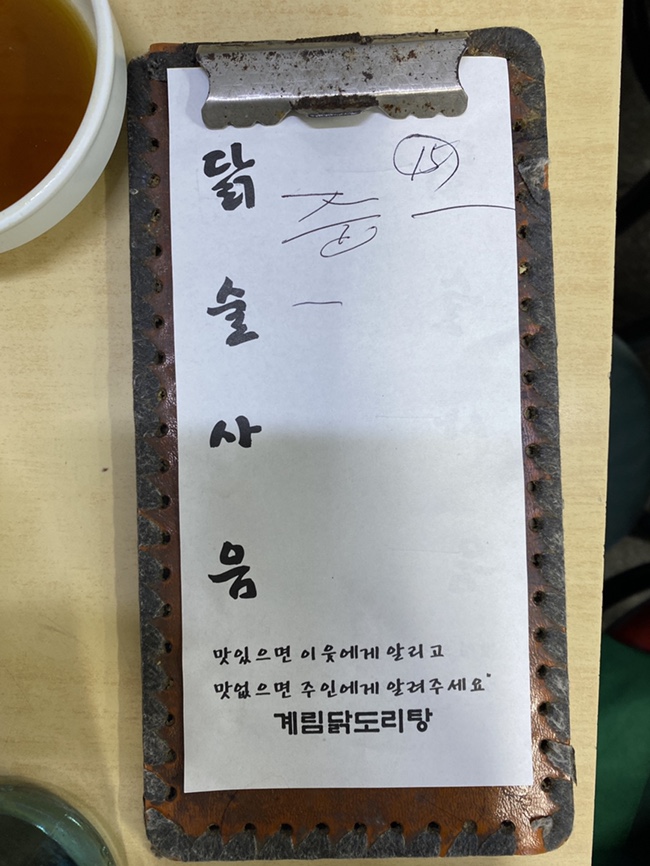 닭 중 15
술
사
음
맛있으면 이웃에게 알리고
맛없으면 주인에게 알려주세요"
계림닭도리탕